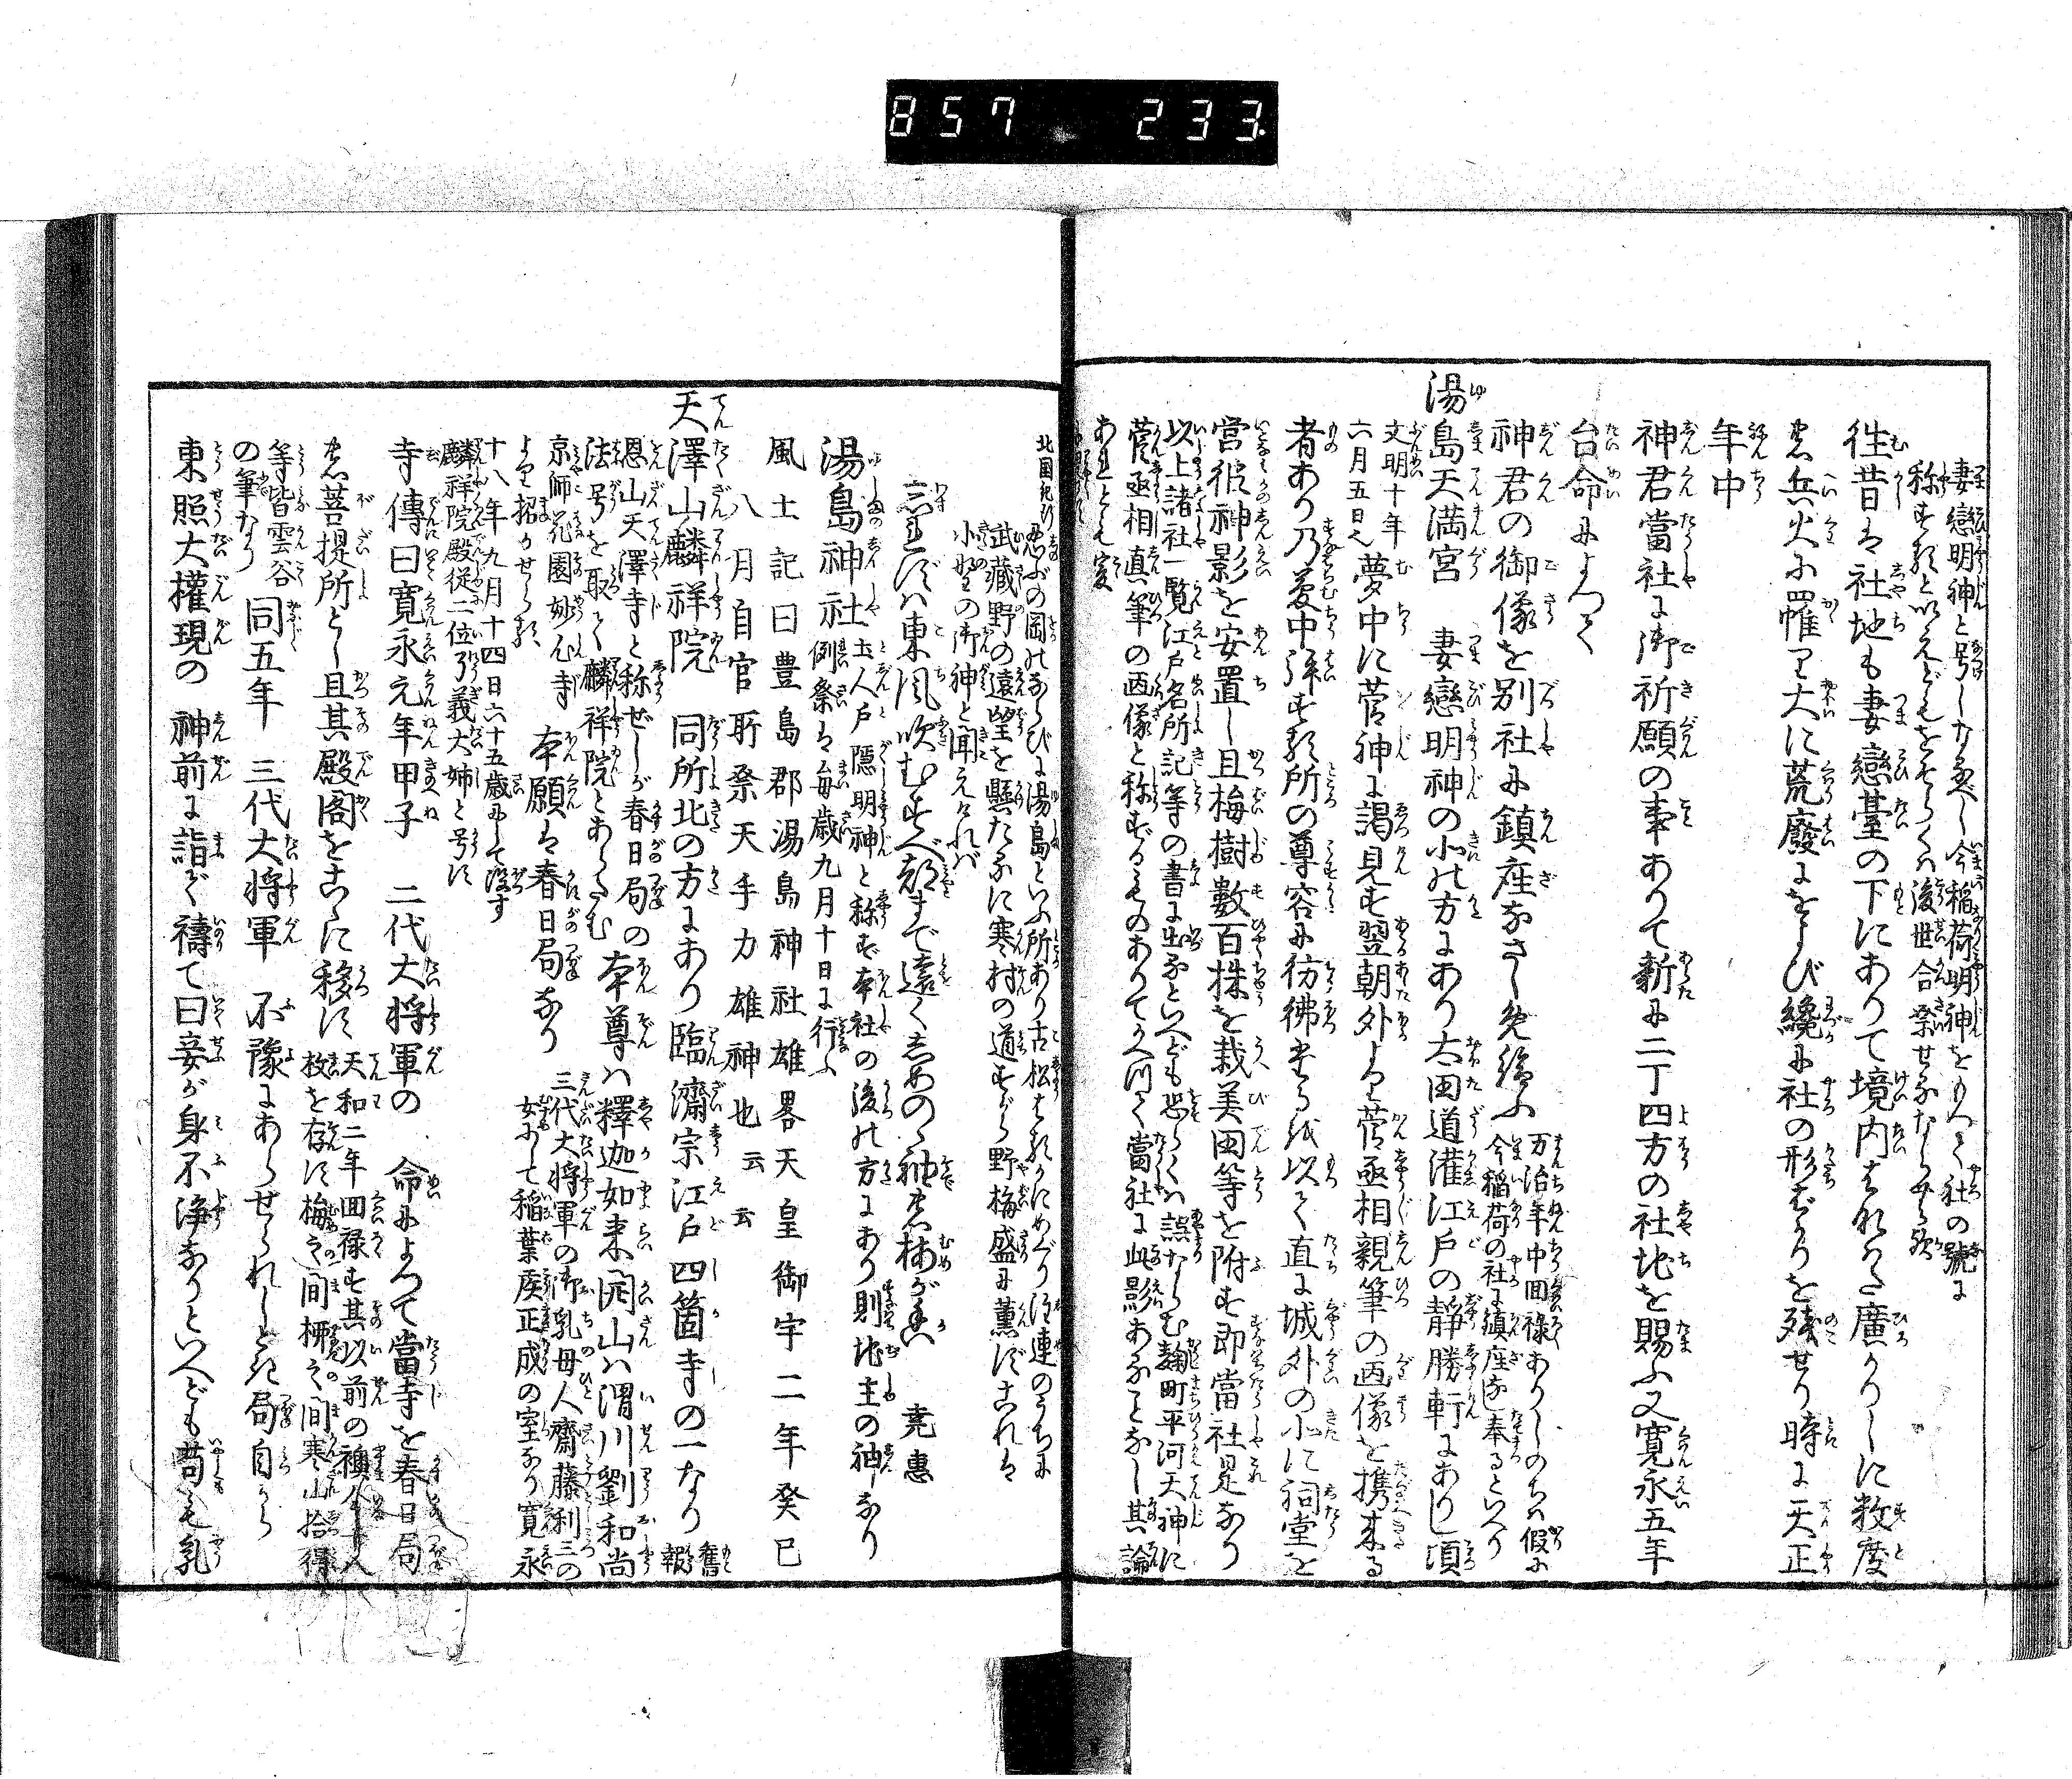 857 233
妻戀明神と号しなるべし今稲荷明神をもつて社の號に
称すると以えどもをそらくは後世合祭せるならむ歟
往昔は社地も妻戀臺の下にありて境内もはなはだ廣かりしに数度
の兵火に罹りて大に荒廢におよび纔に社の形ばかりを残せり時に天正
年中
神君當社に御祈願の事ありて新に二丁四方の社地を賜ふ又寛永五年
台命によつて
神君の御像を別社に鎮座なさしめ給ふ
万治年中回禄ありしのちは假に
今稲荷の社に鎮座なし奉るといへり
湯島天満宮 妻戀明神の北の方にあり太田道灌江戸の静勝軒にありし頃
文明十年
六月五日也
夢中に菅神に謁見す翌朝外より菅丞相親筆の画像を携来る
者あり乃夢中拝する所の尊容に彷彿たるを以て直に城外の北に祠堂を
営彼神影を安置し且梅樹數百株を栽美田等を附す即當社是なり
以上諸社一覧江戸名所記等の書に出るといへども恐らくは誤ならむ麹町平河天神に
菅丞相真筆の画像と称するものありてかつて當社に此影あることなし其論
あれども爰
北国紀行
忍ぶの岡のならびに湯島といふ所あり古松はるかにめぐり注連のうちに
武蔵野の遠望を懸たるに寒村の道すがら野梅盛に薫ず是れは
北野の御神と聞えければ
忘れずは東風吹むすべ都まで遠くしめのゝ袖の梅が香 堯惠
湯島神社 土人戸隠明神と称す本社の後の方にあり則地主の神なり
例祭は毎歳九月十日に行ふ
風土記曰豊島郡湯島神社雄畧天皇御宇二年癸巳
八月自官所祭天手力雄神也云云
天澤山麟祥院 同所北の方にあり臨濟宗江戸四箇寺の一なり
舊
報
恩山天澤寺と称ぜしが春日局の
法号を取て麟祥院とあらたむ
本尊は釋迦如来開山は渭川劉和尚
京師花園妙心寺
より招かせらる
本願は春日局なり
三代大将軍の御乳母人齋藤利三の
女にして稲葉侯正成の室なり寛永
十八年九月十四日六十五歳にして没す
麟祥院殿従二位了義大姉と号す
寺傳曰寛永元年甲子 二代大将軍の 命によつて當寺を春日局
の菩提所とし且其殿閣をこゝに移す
天和二年回禄す其以前の襖今十八
枚を存す梅之間柳之間寒山拾得
等皆雲谷
の筆なり
同五年 三代大将軍 不豫にあらせられしとき局自から
東照大權現の 神前に詣で禱て曰妾が身不浄なりといへども苟も乳